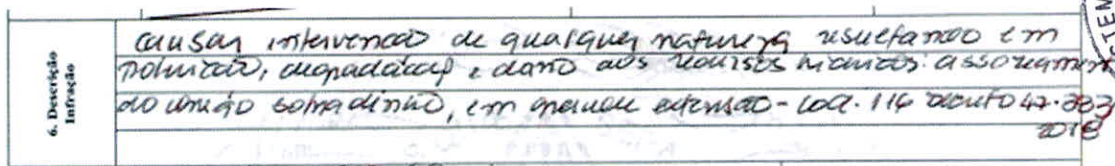 6. Descrição
Infração
causar intervenção de qualquer natureza resultando em
poluição, degradação, e dano aos recursos hídricos: assoreament
do córrego sobradinho, em grande extensão - cod. 116 decreto 47.383
2018
TEM